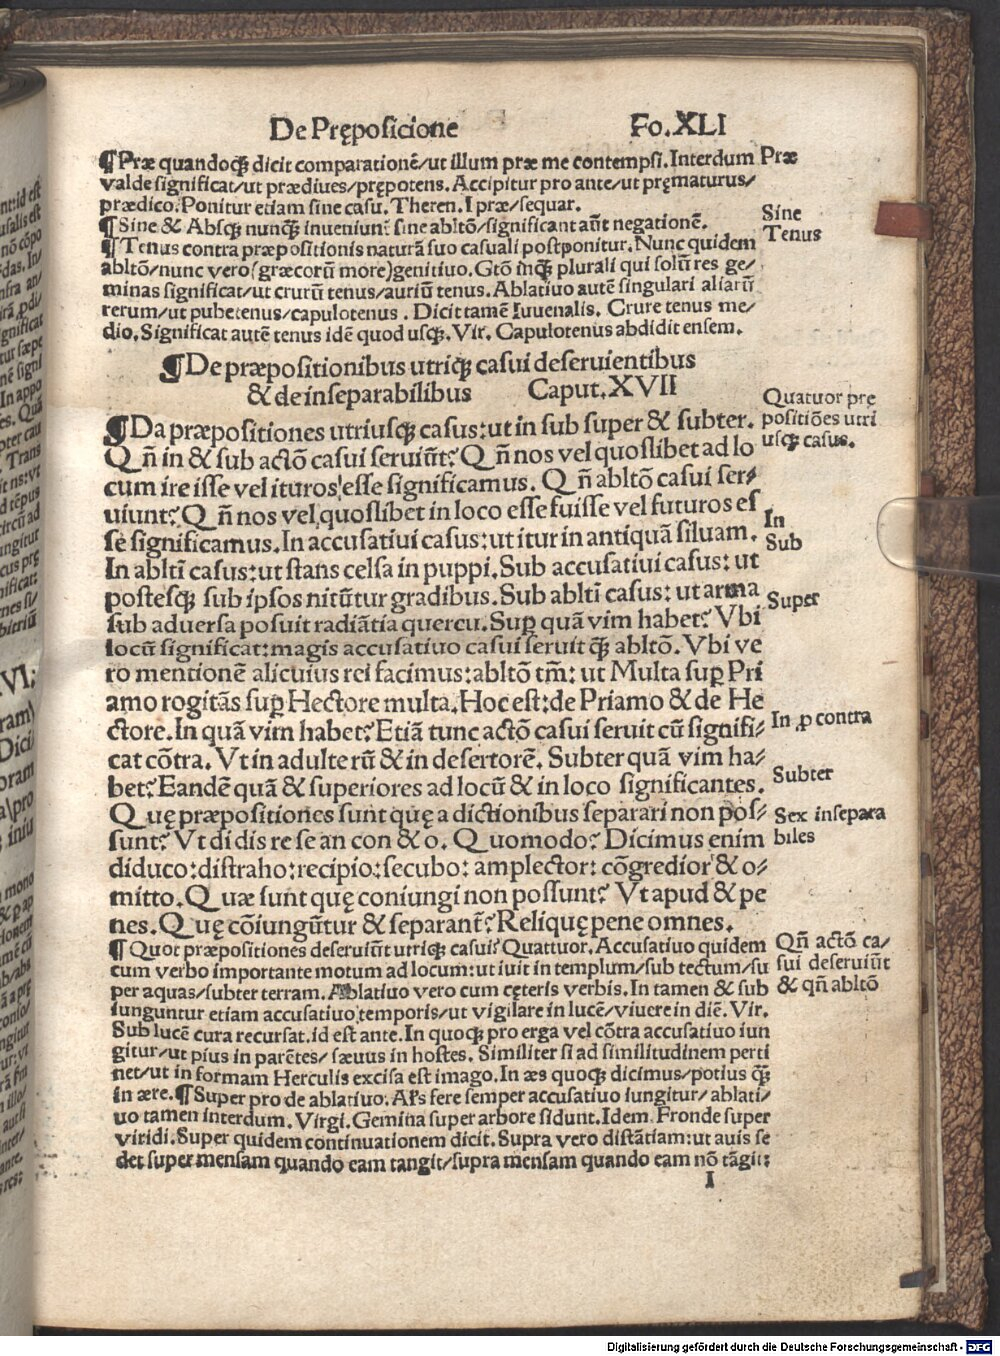 De Pręposicione Fo.XLI
¶Præ quandoqꝫ dicit comparationē/ut illum præ me contempsi.Interdum
Præ
valde significat/ut prædiues/prępotens.Accipitur pro ante/ut pręmaturus/
prædico.Ponitur etiam sine casu.Theren.I præ/sequar.
¶Sine & Absqꝫ nunqꝫ inueniunt sine abltō/significant aūt negationē.
Sine
¶Tenus contra præpositionis naturā suo casuali postponitur.Nunc quidem
Tenus
abltō/nunc vero (græcorū more)genitiuo.Gtō inqꝫ plurali qui solū res ge/
minas significat/ut crurū tenus/auriū tenus.Ablatiuo autē singulari aliarū
rerum/ut pubetenus/capulotenus . Dicit tamē Iuuenalis. Crure tenus me/
dio.Significat autē tenus idē quod usqꝫ.Vir. Capulotenus abdidit ensem.
¶De præpositionibus utriqꝫ casui deseruientibus
& de inseparabilibus Caput.XVII
¶Da præpositiones utriusqꝫ casus:ut in sub super & subter.
Quatuor pre
positiões utri
usqꝫ casus.
Qn̄ in & sub actō casui seruiūt? Qn̄ nos vel quoslibet ad lo
cum ire isse vel ituros esse significamus. Qn̄ abltō casui ser/
uiunt? Qn̄ nos vel quoslibet in loco esse fuisse vel futuros es
In
se significamus.In accusatiui casus:ut itur in antiquā siluam.
Sub
In abltī casus:ut stans celsa in puppi.Sub accusatiui casus: ut
postesqꝫ sub ipsos nitūtur gradibus.Sub abltī casus: ut arma
Super
sub aduersa posuit radiātia quercu.Suꝑ quā vim habet? Vbi
locū significat:magis accusatiuo casui seruit qꝫ abltō.Vbi ve
ro mentionē alicuius rei facimus:abltō tm̄: ut Multa suꝑ Pri
amo rogitās suꝑ Hectore multa.Hoc est:de Priamo & de He
ctore.In quā vim habet? Etiā tunc actō casui seruit cū signifi/
In ꝓ contra
cat cōtra. Vt in adulterū & in desertorē. Subter quā vim ha/
Subter
bet? Eandē quā & superiores ad locū & in loco significantes.
Quę præpositiones sunt quę a dictionibus separari non pos/
Sex insepara
biles
sunt? Vt di dis re se an con & o. Quomodo? Dicimus enim
diduco:distraho:recipio:secubo: amplector: cōgredior & o/
mitto.Quæ sunt quę coniungi non possunt? Vt apud & pe
nes.Quę cōiungūtur & separant̄? Reliquę pene omnes.
¶Quot præpositiones deseruiūt utriqꝫ casui? Quattuor.Accusatiuo quidem
Qn̄ actō ca/
sui deseruiūt
& qn̄ abltō
cum verbo importante motum ad locum:ut iuit in templum/sub tectum/su
per aquas/subter terram.Ablatiuo vero cum cęteris verbis.In tamen & sub
iunguntur etiam accusatiuo temporis/ut vigilare in lucē/viuere in diē. Vir.
Sub lucē cura recursat.id est ante.In quoqꝫ pro erga vel cōtra accusatiuo iun
gitur/ut pius in parētes/ sæuus in hostes. Similiter si ad similitudinem perti
net/ut in formam Herculis excisa est imago.In æs quoqꝫ dicimus/potius qꝫ
in ære.¶Super pro de ablatiuo. Als fere semper accusatiuo iungitur/ ablati/
uo tamen interdum. Virgi. Gemina super arbore sidunt.Idem. Fronde super
viridi.Super quidem continuationem dicit. Supra vero distātiam:ut auis se
det super mensam quando eam tangit/supra mensam quando eam nō tāgit:
I
Digitalisierung gefördert durch die Deutsche Forschungsgemeinschaft - DFG